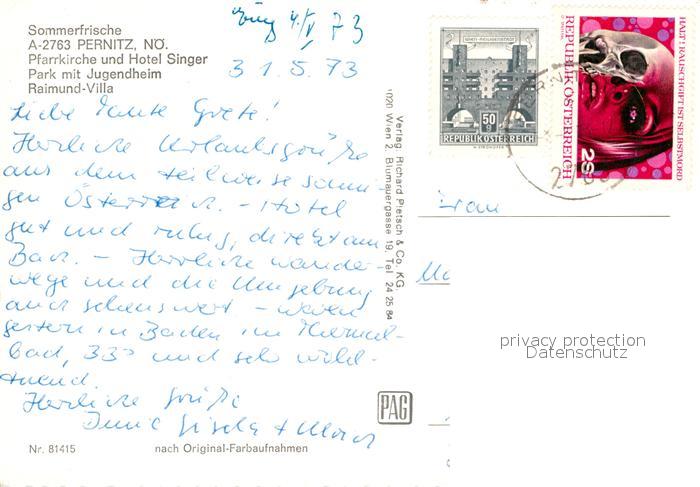 Sommerfrische
A-2763 PERNITZ, NÖ.
Pfarrkirche und Hotel Singer
Park mit Jugendheim
Raimund-Villa
4/V 73
31.5.73
Liebe Tante Grete!
Herzliche Urlaubsgrüße
aus dem teilweise sonni-
gen Österreich. - Hotel
gut und ruhig, direkt am
Bach. - Herrliche Wander-
wege und die Umgebung
auch sehenswert - waren
gestern in Baden im Thermal-
bad, 33° und sehr wohl-
tuend.
Herzliche Grüße
Gisela +
Nr. 81415
nach Original-Farbaufnahmen
Verlag Richard Pietsch & Co. KG.
1020 Wien 2, Blumauergasse 19, Tel 24 25 84
PAG
WIEN-HEILIGENSTADT
50 g
REPUBLIK ÖSTERREICH
HALT! RAUSCHGIFT IST SELBSTMORD
REPUBLIK ÖSTERREICH
2S
Frau
privacy protection
Datenschutz